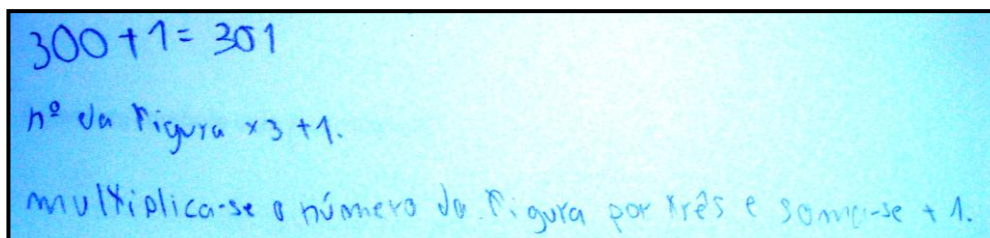 300 + 1 = 301
nº da Figura × 3 + 1.
multiplica-se o número da Figura por três e soma-se + 1.